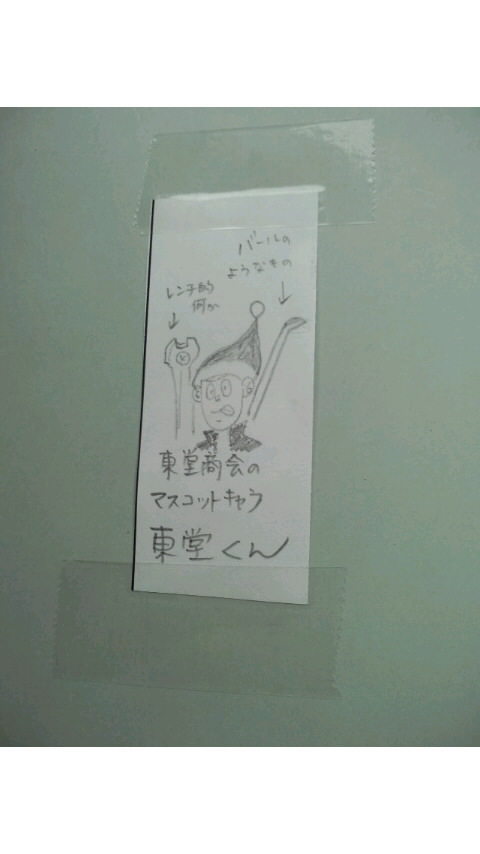 バールの
ようなもの
レンチ的
何か
東堂商会の
マスコットキャラ
東堂くん